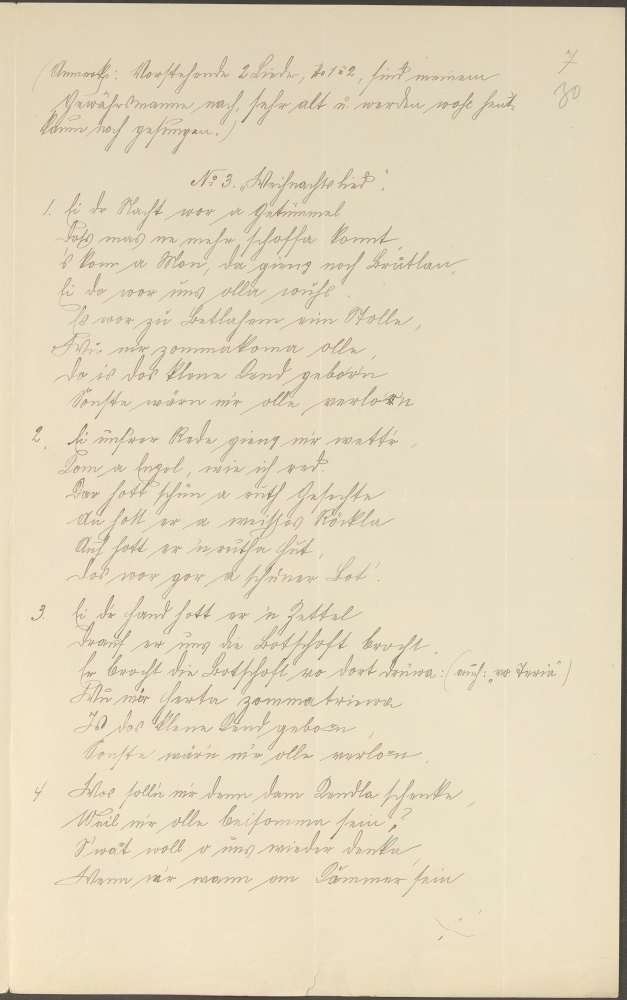 7
30
(Anmerk: Vorstehende 2 Lieder, No 1 u 2, sind meinem
Gewährsmanne nach, sehr alt u. werden wohl heut
kaum noch gesungen.)
No 3. „Weihnachtslied“.
1. Ei dr Nacht wor a Getümmel
Doß mas ne mehr schoffa konnt,
's kom a Mon, da gieng noch Brutlau,
Ei do wor uns olla wuhl.
Es wor zu Betlahem eim Stolle,
Wu mr zommakoma olle,
Do is dos klene Kend gebor'n
Sonste wärn mir olle verlor'n
2. Ei unsrer Rede gieng mir wettr,
Kom a Engel, wie ich red.
Dar hott schun a ruth Gesechte
Au hott er a weißes Röckla
Auf hott er 'n rutha Hut,
Dos wor gor a schüner Bot'.
3. Ei dr Hand hott er 'n Zettel
Drauf er uns die Botschoft brocht.
Er brocht die Botschoft vo dort drüwa: (auch: „vo Teria“)
Wu mir Herta zommatriewa
Is dos klene Kend gebor'n,
Sonste wär'n mir olle verlor'n.
4 Wos soll'n mir denn dam Kendla schenke,
Weil mir olle beisomma sein?
S'wat woll o uns wieder denka
Wenn mr wann om Kommer sein